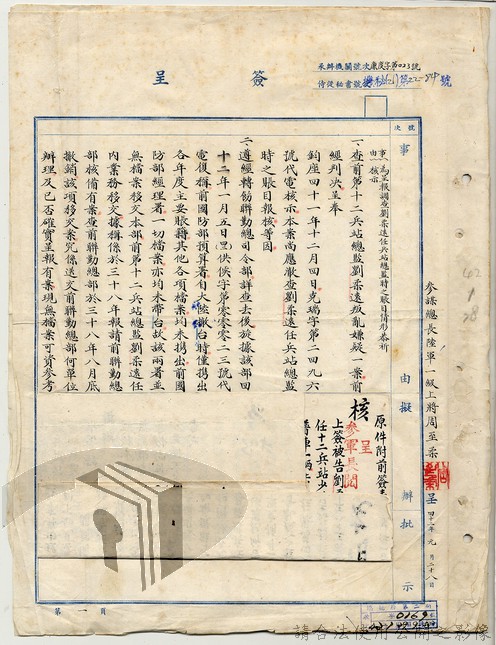 簽呈
來辦機關號次康度字第023號
侍從秘書號次
號次
事由
擬辦
批示
事由 為呈報調查劉柔遠任兵站總監時之賬目情形恭祈核示
一、查前第十二兵站總監劉柔遠叛亂嫌疑一案前
經判決呈奉
鈞座四十一年十二月四日克瑞字第二四九六
號代電核示本案尚應嚴查劉柔遠任兵站總監
時之賬目報核等因
二、遵經轉飭聯勤總司令部詳查去後旋據該部四
十二年一月五日以供候字第零零零二三號代
電復稱前國防部預算署自大陸撤台時僅携出
各年度主要賬籍其他各項檔案均未携出前國
防部經理署一切檔案亦均未帶台故該兩署並
無檔案移交本部前第十二兵站總監劉柔遠任
內業務移交據稱係於三十八年報請前聯勤總
部核備有案查前聯勤總部於三十八年八月底
撤銷該項移交案究係送交前聯勤總部何單位
辦理及已否確實呈報有案現無檔案可資參考
原件附前簽
核
呈
參軍長閱
上簽被告劉
任十二兵站少
參謀總長陸軍一級上將周至柔呈
四十二年元月二十八日
42 1 28
第一頁
0169
請合法使用公開之影像